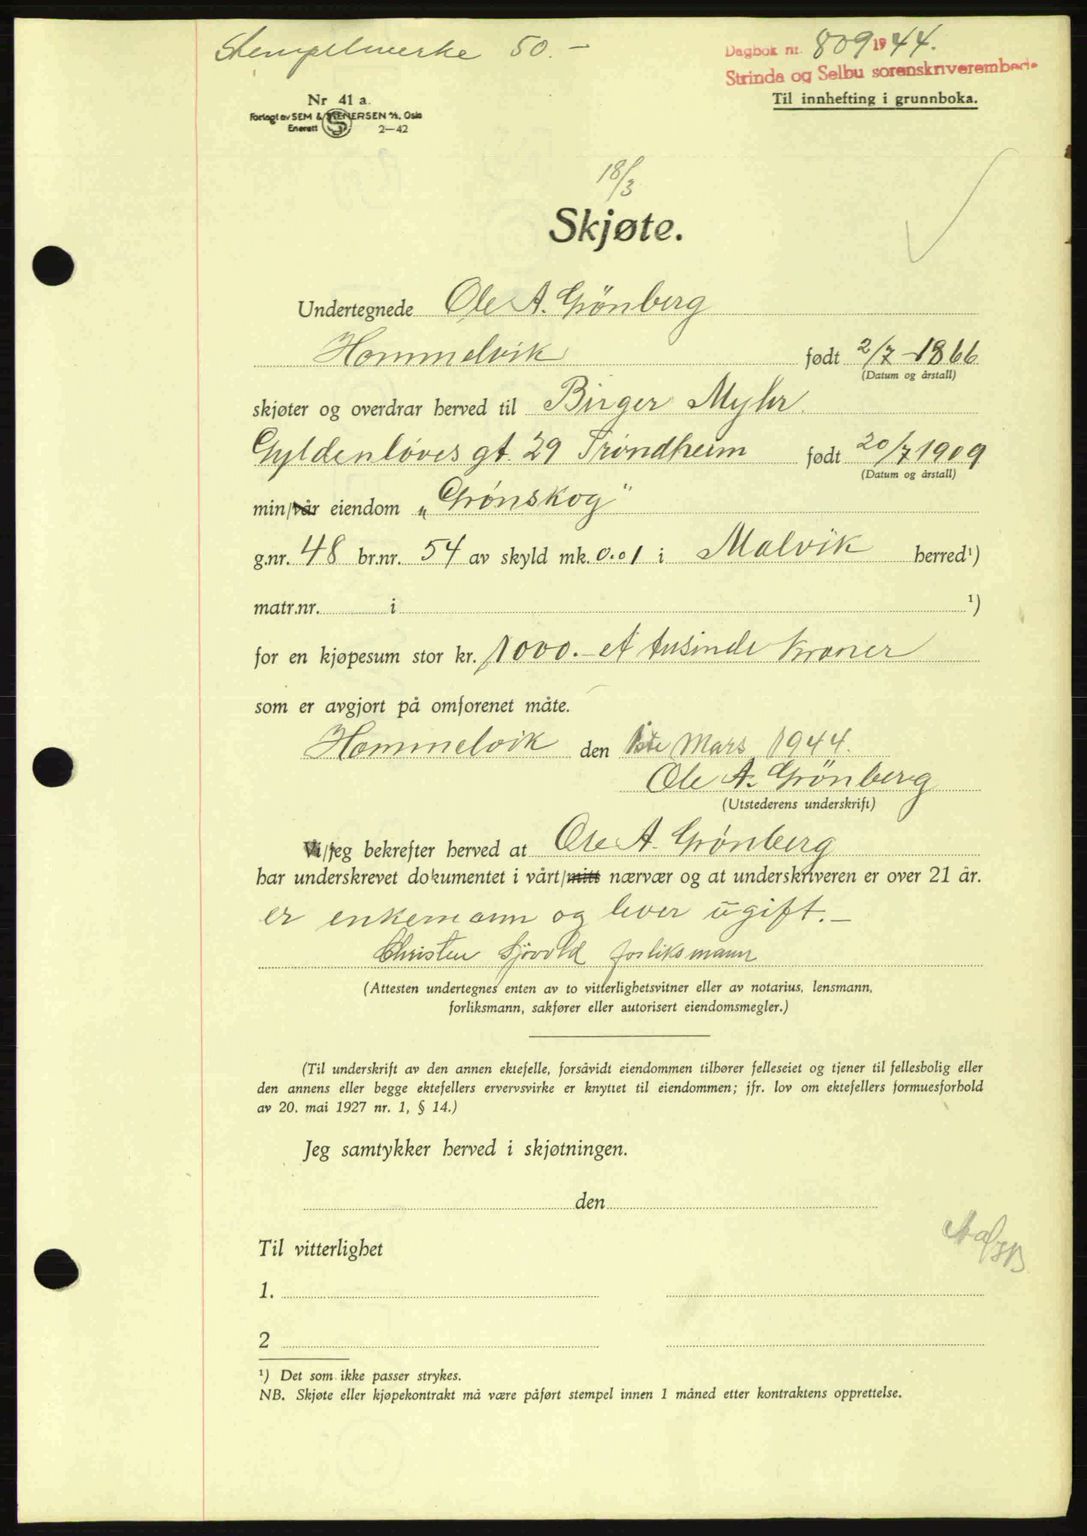 Stempelmerke 50.-
Dagbok nr. 809 1944.
Strinda og Selbu sorenskriverembede
Til innhefting i grunnboka.
Nr 41 a.
Forlagt av SEM & STENERSEN A/S, Oslo
Enerett 2-42
18/3
Skjøte.
Undertegnede Ole A. Grönberg
Hommelvik født 2/7-1866
(Datum og årstall)
skjøter og overdrar herved til Birger Myhr.
Gyldenløves gt. 29 Trondheim født 20/7 1909
(Datum og årstall)
min/vår eiendom „Grønskog"
g.nr. 48 br.nr. 54 av skyld mk. 0.01 i Malvik herred¹)
matr.nr. i ¹)
for en kjøpesum stor kr. 1000.- et tusinde kroner
som er avgjort på omforenet måte.
Hommelvik den 1ste Mars 1944.
Ole A. Grönberg
(Utstederens underskrift)
Vi/jeg bekrefter herved at Ole A. Grønberg
har underskrevet dokumentet i vårt/mitt nærvær og at underskriveren er over 21 år.
er enkemann og lever ugift.-
Christen Sjövold forliksmann
(Attesten undertegnes enten av to vitterlighetsvitner eller av notarius, lensmann,
forliksmann, sakfører eller autorisert eiendomsmegler.)
(Til underskrift av den annen ektefelle, forsåvidt eiendommen tilhører felleseiet og tjener til fellesbolig eller
den annens eller begge ektefellers ervervsvirke er knyttet til eiendommen; jfr. lov om ektefellers formuesforhold
av 20. mai 1927 nr. 1, § 14.)
Jeg samtykker herved i skjøtningen.
den
Til vitterlighet
1.
2
¹) Det som ikke passer strykes.
NB. Skjøte eller kjøpekontrakt må være påført stempel innen 1 måned etter kontraktens opprettelse.